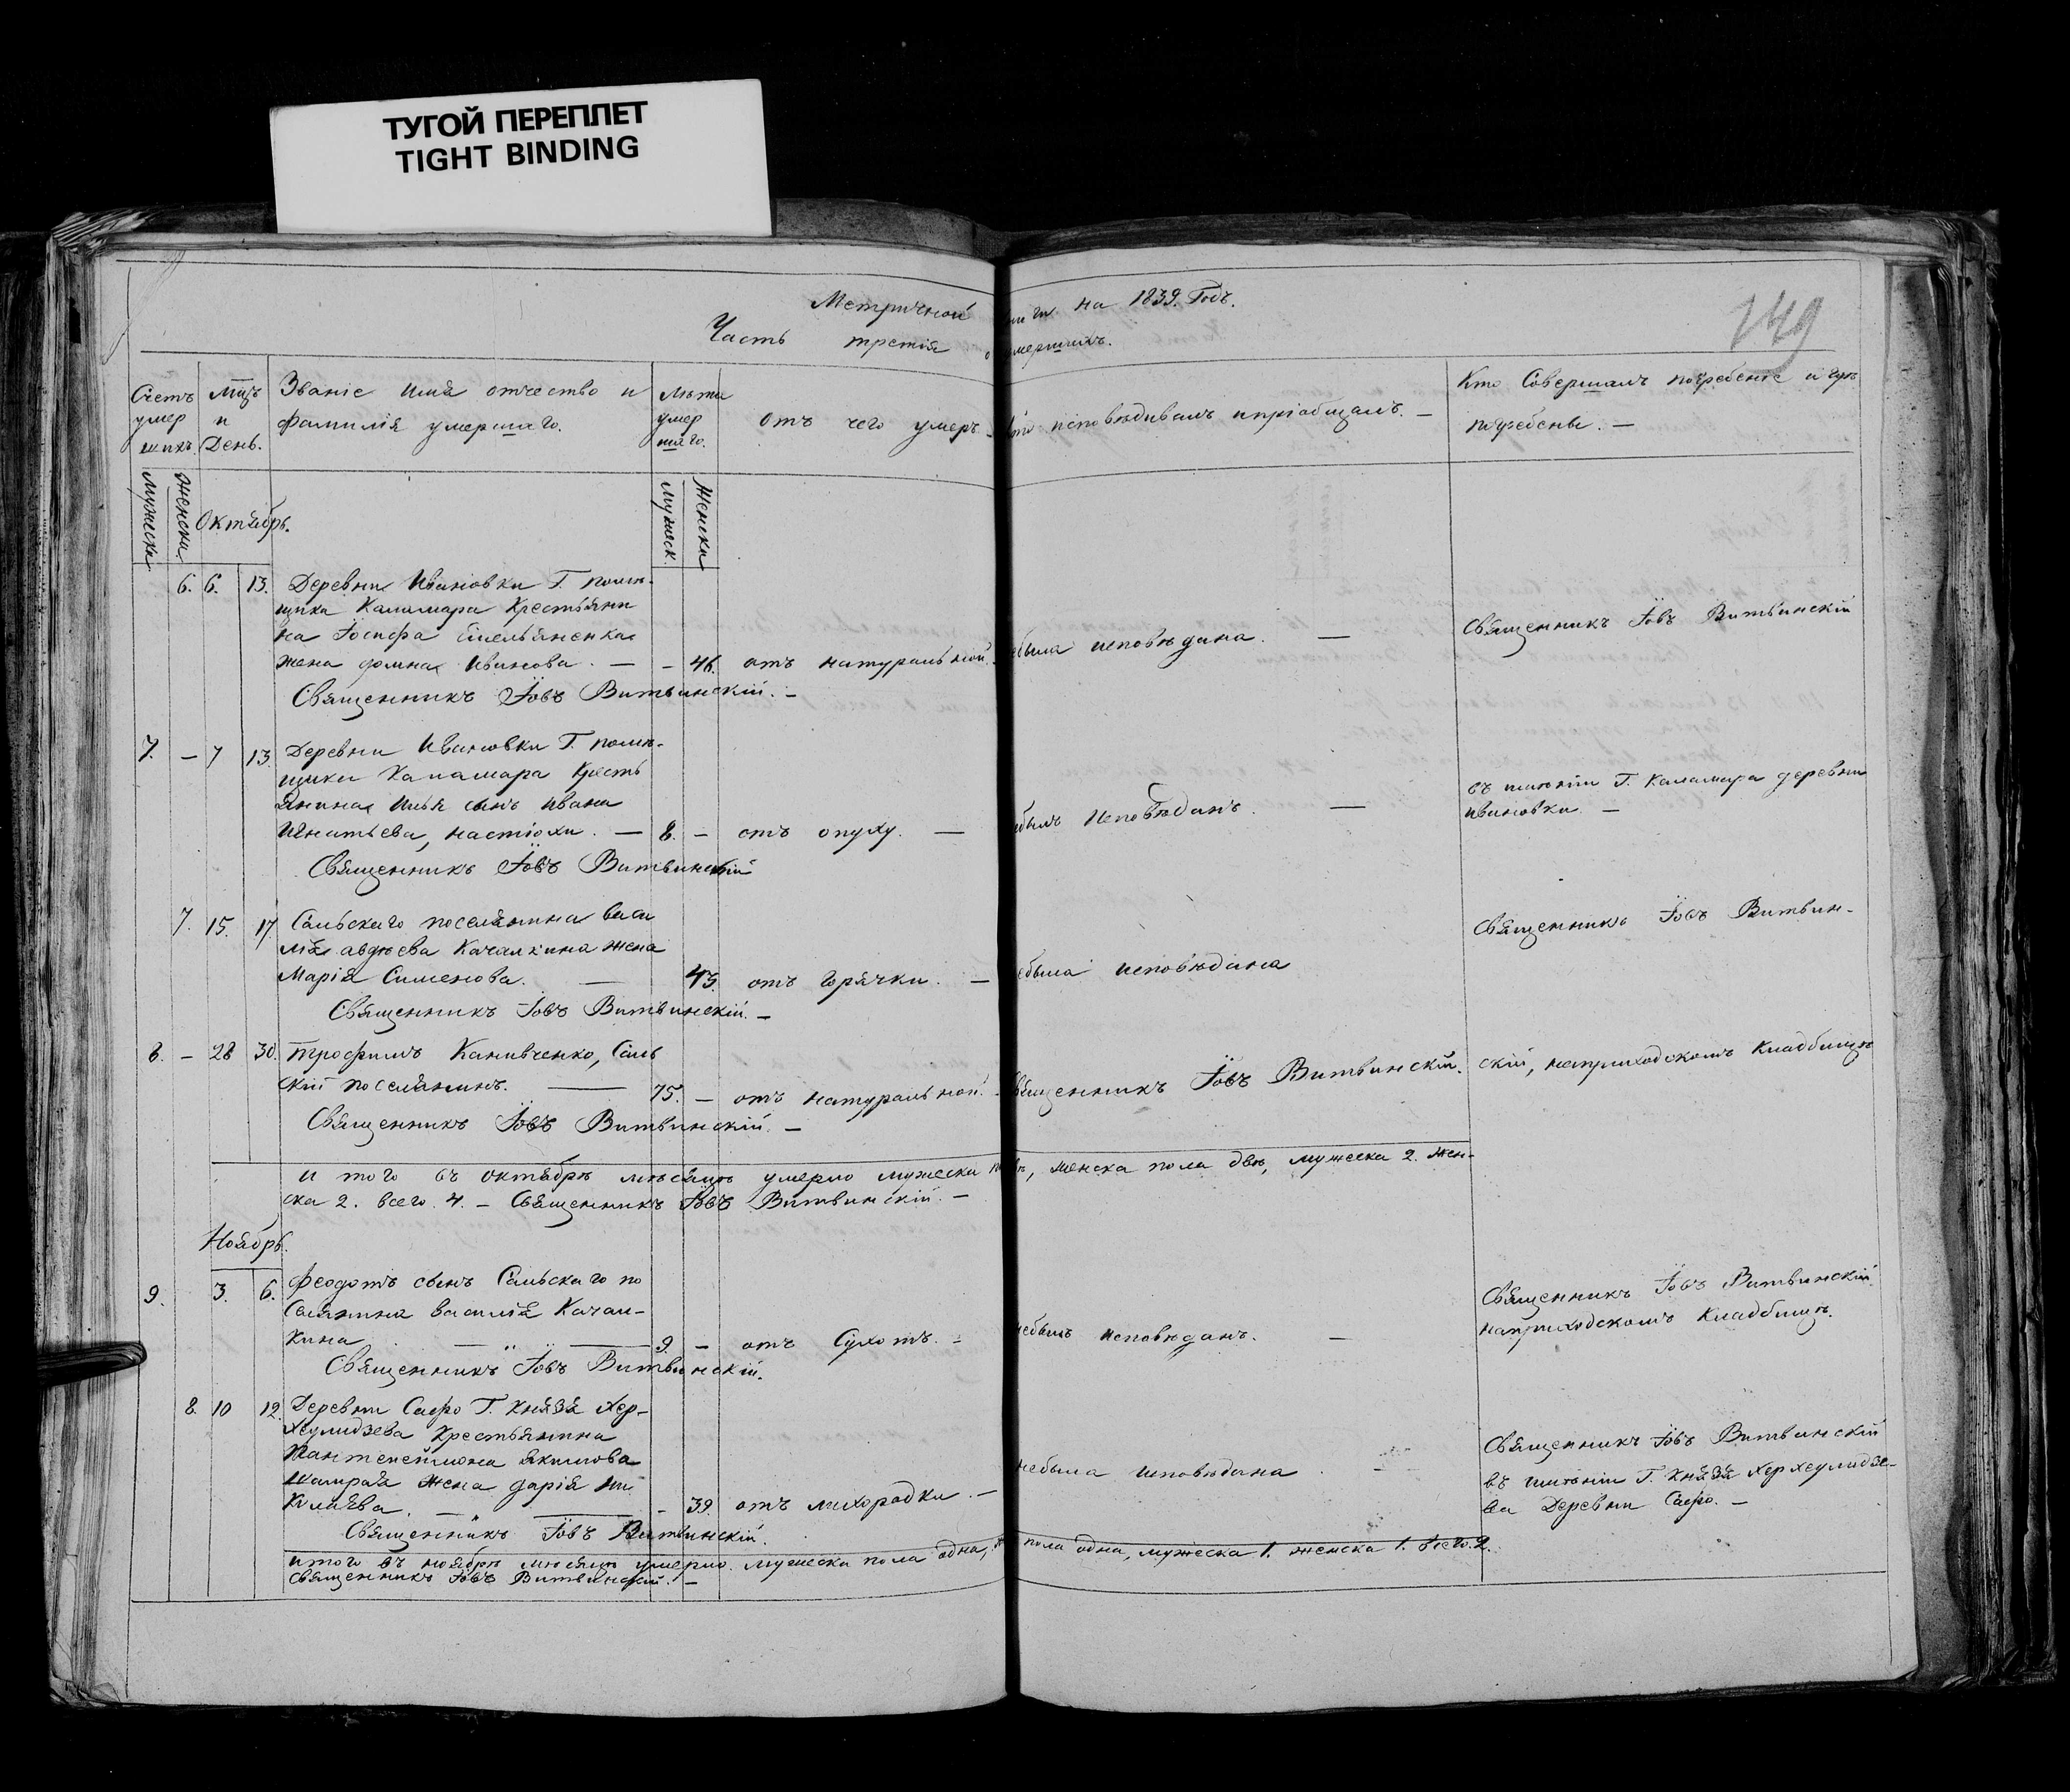 ТУГОЙ ПЕРЕПЛЕТ
TIGHT BINDING
Метричной книги на 1839. Годъ.
Часть третія о умершихъ.
149
Счетъ умер шихъ.
Мцъ и День.
Званіе имя отчество и
фамилія умершаго.
Лѣта умер шаго.
Отъ чего умеръ.
Кто исповѣдивалъ и пріобщалъ. —
Кто Совершалъ погребеніе и гдѣ
погребены. —
Мужеска
Женска.
Октябрь.
Мужеск.
Женска
6. 6. 13. Деревни Ивановки Г. помѣ-
щика Каламара Крестьяни
на Іосифа Емельяненка
жена фомна Иванова. — – 46. отъ натуральной. – небыла исповѣдана. —
Священникъ Іовъ Витвинскій. –
Священникъ Іовъ Витвинскій
7. – 7 13. Деревни Ивановки Г. помѣ-
щика Каламара Кресть
янина Илья сынъ Ивана
Игнатьева, настіохи. — 8. – отъ опуху. — небылъ исповѣданъ. —
Священникъ Іовъ Витвинскій
въ имѣніи Г. Каламара деревни
Ивановки. —
7. 15. 17. Сальскаго поселянина Васи
лія авдѣева Качалкина жена
Марія Сименова. — 43. отъ горячки. — небыла исповѣдана
Священникъ Іовъ Витвинскій. –
Священникъ Іовъ Витвин-
скій, наприходскомъ Кладбищѣ
8. – 28 30. Трофимъ Канивченко, Саль
скій поселянинъ. — 75. – отъ натуральной. – Священникъ Іовъ Витвинскій.
Священникъ Іовъ Витвинскій. –
и того въ октябрѣ мѣсяцѣ умерло мужеска два, женска пола двѣ, мужеска 2. жен-
ска 2. всего. 4. – Священникъ Іовъ Витвинскій. –
Ноябрь.
9. 3. 6. Феодотъ сынъ Сальскаго по
селянина Василія Качал-
кина — 9. – отъ Сухотъ. – небылъ исповѣданъ. —
Священникъ Іовъ Витвинскій.
Священникъ Іовъ Витвинскій
наприходскомъ Кладбищѣ.
8. 10 12. Деревни Сафо Г. Князя Хер-
хеулидзева Крестьянина
Пантелеймона Якимова
жена дарія Ни
колаева. — – 39. отъ лихорадки. – небыла исповѣдана. –
Священникъ Іовъ Витвинскій.
Священникъ Іовъ Витвинскій
въ имѣніи Г. Князя Херхеулидзе-
ва Деревни Сафо. –
итого въ ноябрѣ мѣсяцѣ умерло. мужеска пола одна, пола одна, мужеска 1. женска 1. всего. 2.
Священникъ Іовъ Витвинскій. –